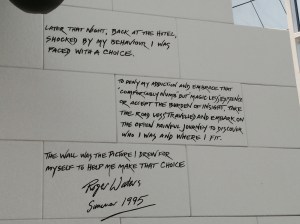 LATER THAT NIGHT, BACK AT THE HOTEL,
SHOCKED BY MY BEHAVIOUR, I WAS
FACED WITH A CHOICE.
TO DENY MY ADDICTION AND EMBRACE THAT
'COMFORTABLY NUMB' BUT MAGIC-LESS EXISTENCE
OR ACCEPT THE BURDEN OF INSIGHT, TAKE
THE ROAD LESS TRAVELLED AND EMBARK ON
THE OFTEN PAINFUL JOURNEY TO DISCOVER
WHO I WAS AND WHERE I FIT.
THE WALL WAS THE PICTURE I DREW FOR
MYSELF TO HELP ME MAKE THAT CHOICE
Roger Waters
Summer 1995